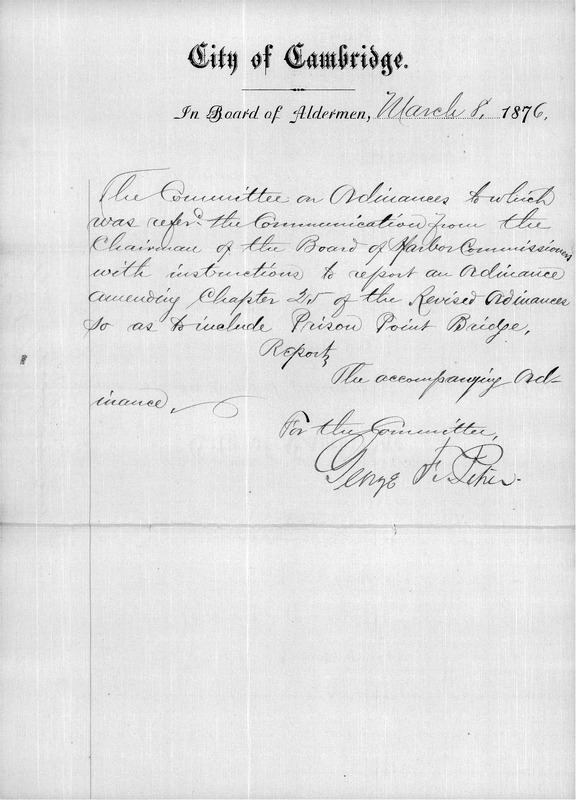 City of Cambridge.
In Board of Aldermen, March 8, 1876.
The Committee on Ordinances to which
was refer'd the Communication from the
Chairman of the Board of Harbor Commissioners
with instructions to report an Ordinance
amending Chapter 25 of the Revised Ordinances
so as to include Prison Point Bridge,
Report,
The accompanying Ord-
inance,
For the Committee,
George F.